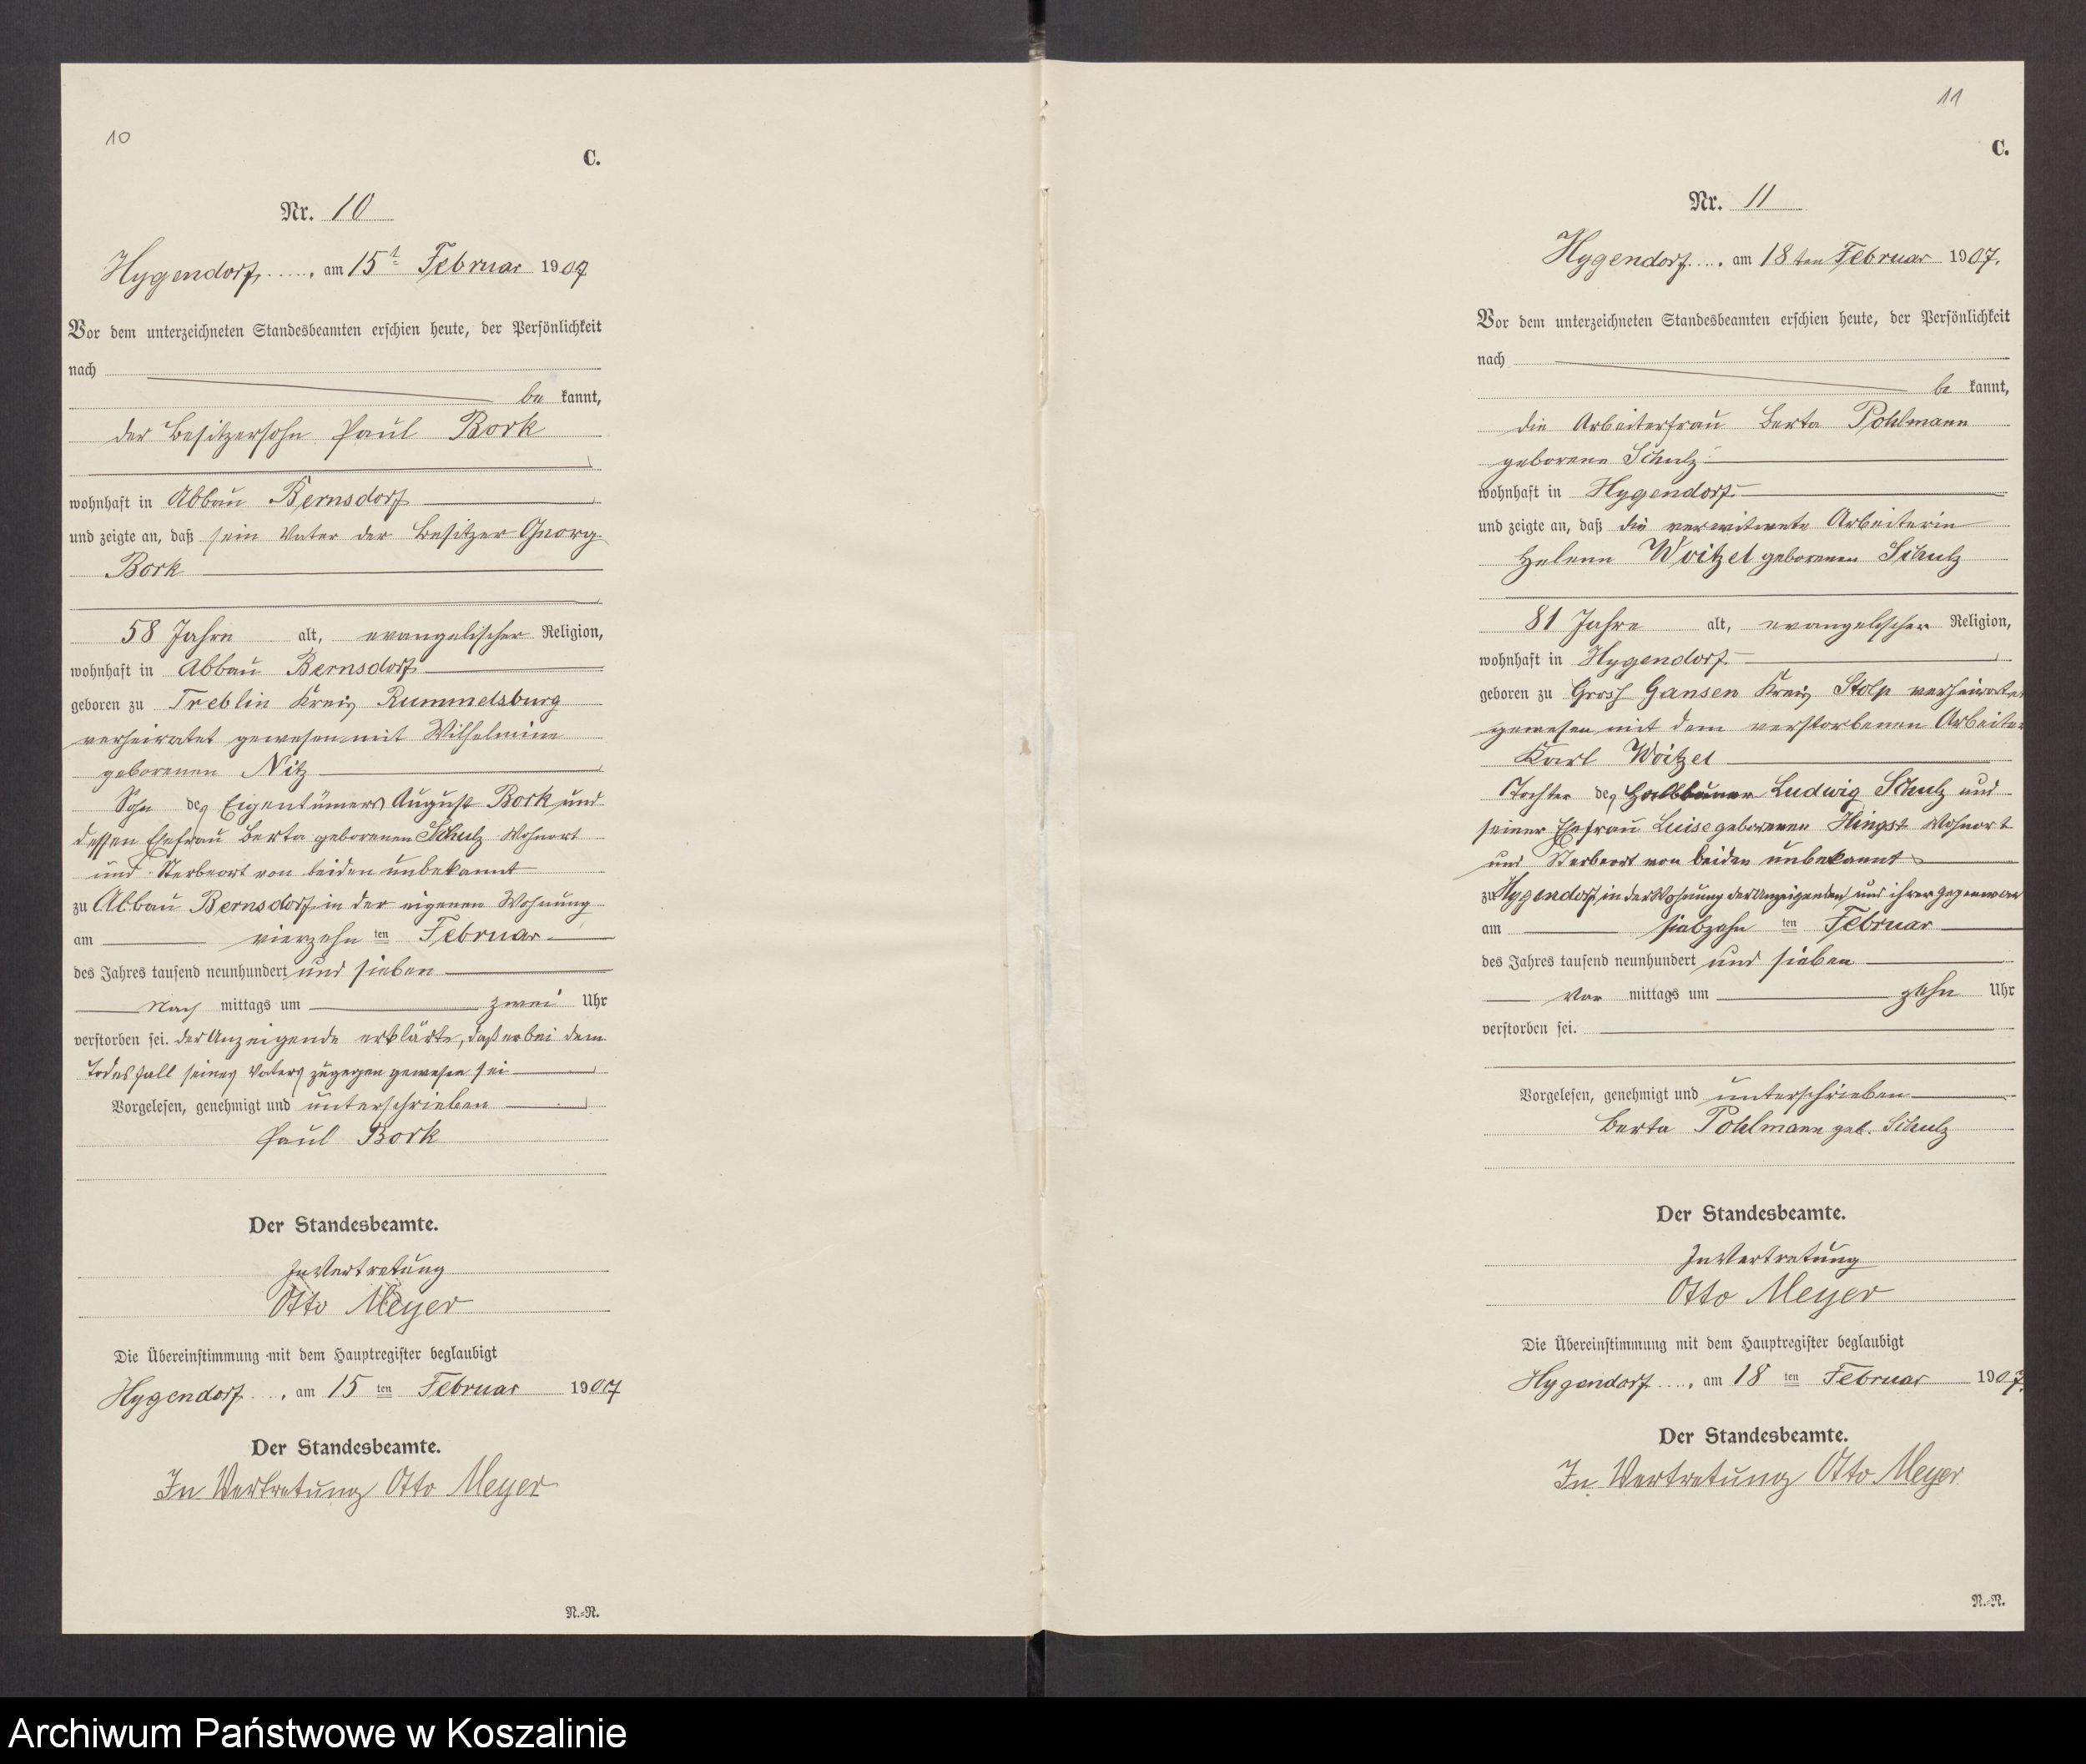 10
C.
Nr. 10
Hygendorf, am 15t Februar 1907
Vor dem unterzeichneten Standesbeamten erschien heute, der Persönlichkeit
nach
be kannt,
der Besitzersohn Paul Bork
wohnhaft in Abbau Bernsdorf
und zeigte an, daß sein Vater der Besitzer Georg
Bork
58 Jahre alt, evangelischer Religion,
wohnhaft in Abbau Bernsdorf
geboren zu Treblin Kreis Rummelsburg
verheiratet gewesen mit Wilhelmine
geborenen Nitz
Sohn des Eigentümers August Bork und
dessen Ehefrau Berta geborenen Schulz Wohnort
und Sterbeort von beiden unbekannt
zu Abbau Bernsdorf in der eigenen Wohnung
am vierzehn ten Februar
des Jahres tausend neunhundert und sieben
Nach mittags um zwei Uhr
verstorben sei. der Anzeigende erklärte, daß er bei dem
Todesfall seines Vaters zugegen gewesen sei
Vorgelesen, genehmigt und unterschrieben
Paul Bork
Der Standesbeamte.
In Vertretung
Otto Meyer
Die Übereinstimmung mit dem Hauptregister beglaubigt
Hygendorf, am 15 ten Februar 1907
Der Standesbeamte.
In Vertretung Otto Meyer
N.-N.
11
C.
Nr. 11
Hygendorf, am 18ten Februar 1907.
Vor dem unterzeichneten Standesbeamten erschien heute, der Persönlichkeit
nach
be kannt,
die Arbeiterfrau Berta Pohlmann
geborene Schulz
wohnhaft in Hygendorf
und zeigte an, daß die verwitwete Arbeiterin
Helene Woitzel geborenen Schulz
81 Jahre alt, evangelischer Religion,
wohnhaft in Hygendorf
geboren zu Gross Gansen Kreis Stolp verheiratet
gewesen mit dem verstorbenen Arbeiter
Karl Woitzel
Tochter des Halbbauer Ludwig Schulz und
seiner Ehefrau Luise geborenen Hingst Wohnort
und Sterbeort von beiden unbekannt
zu Hygendorf, in der Wohnung der Anzeigenden und ihrer Gegenwart
am siebzehn ten Februar
des Jahres tausend neunhundert und sieben
Vor mittags um zehn Uhr
verstorben sei.
Vorgelesen, genehmigt und unterschrieben
Berta Pohlmann geb. Schulz
Der Standesbeamte.
In Vertretung
Otto Meyer
Die Übereinstimmung mit dem Hauptregister beglaubigt
Hygendorf, am 18 ten Februar 1907.
Der Standesbeamte.
In Vertretung Otto Meyer
N.-N.
Archiwum Państwowe w Koszalinie